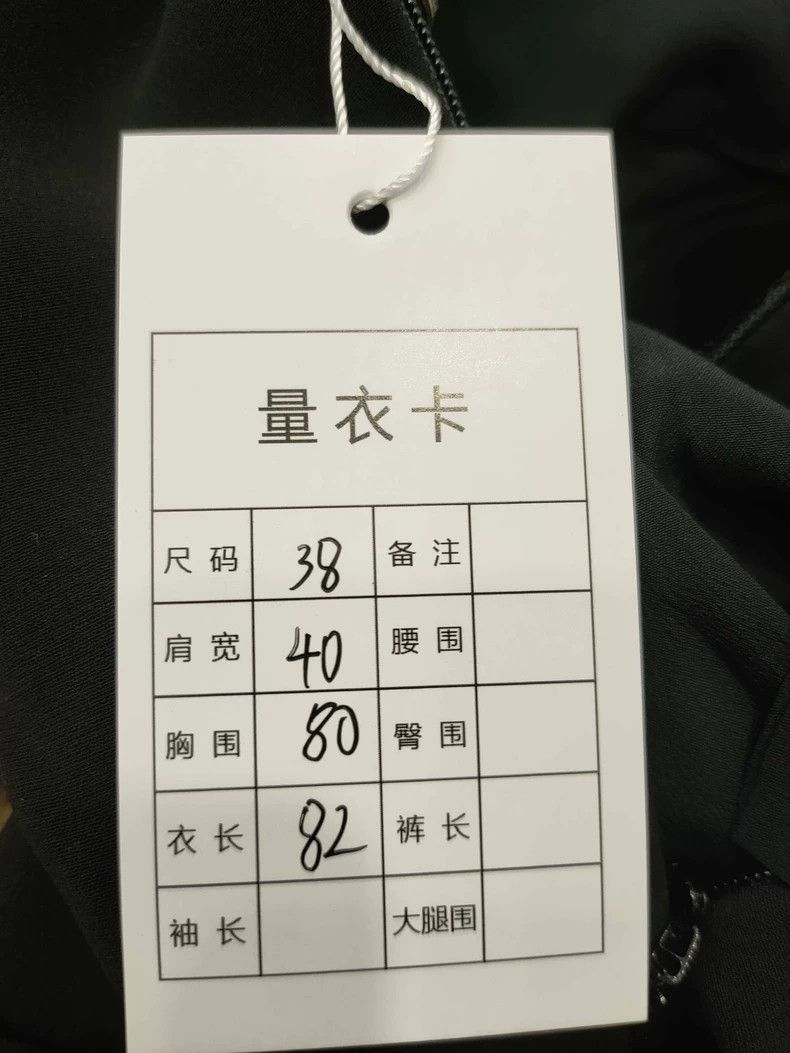 量衣卡
尺码 38 备注
肩宽 40 腰围
胸围 80 臀围
衣长 82 裤长
袖长 大腿围